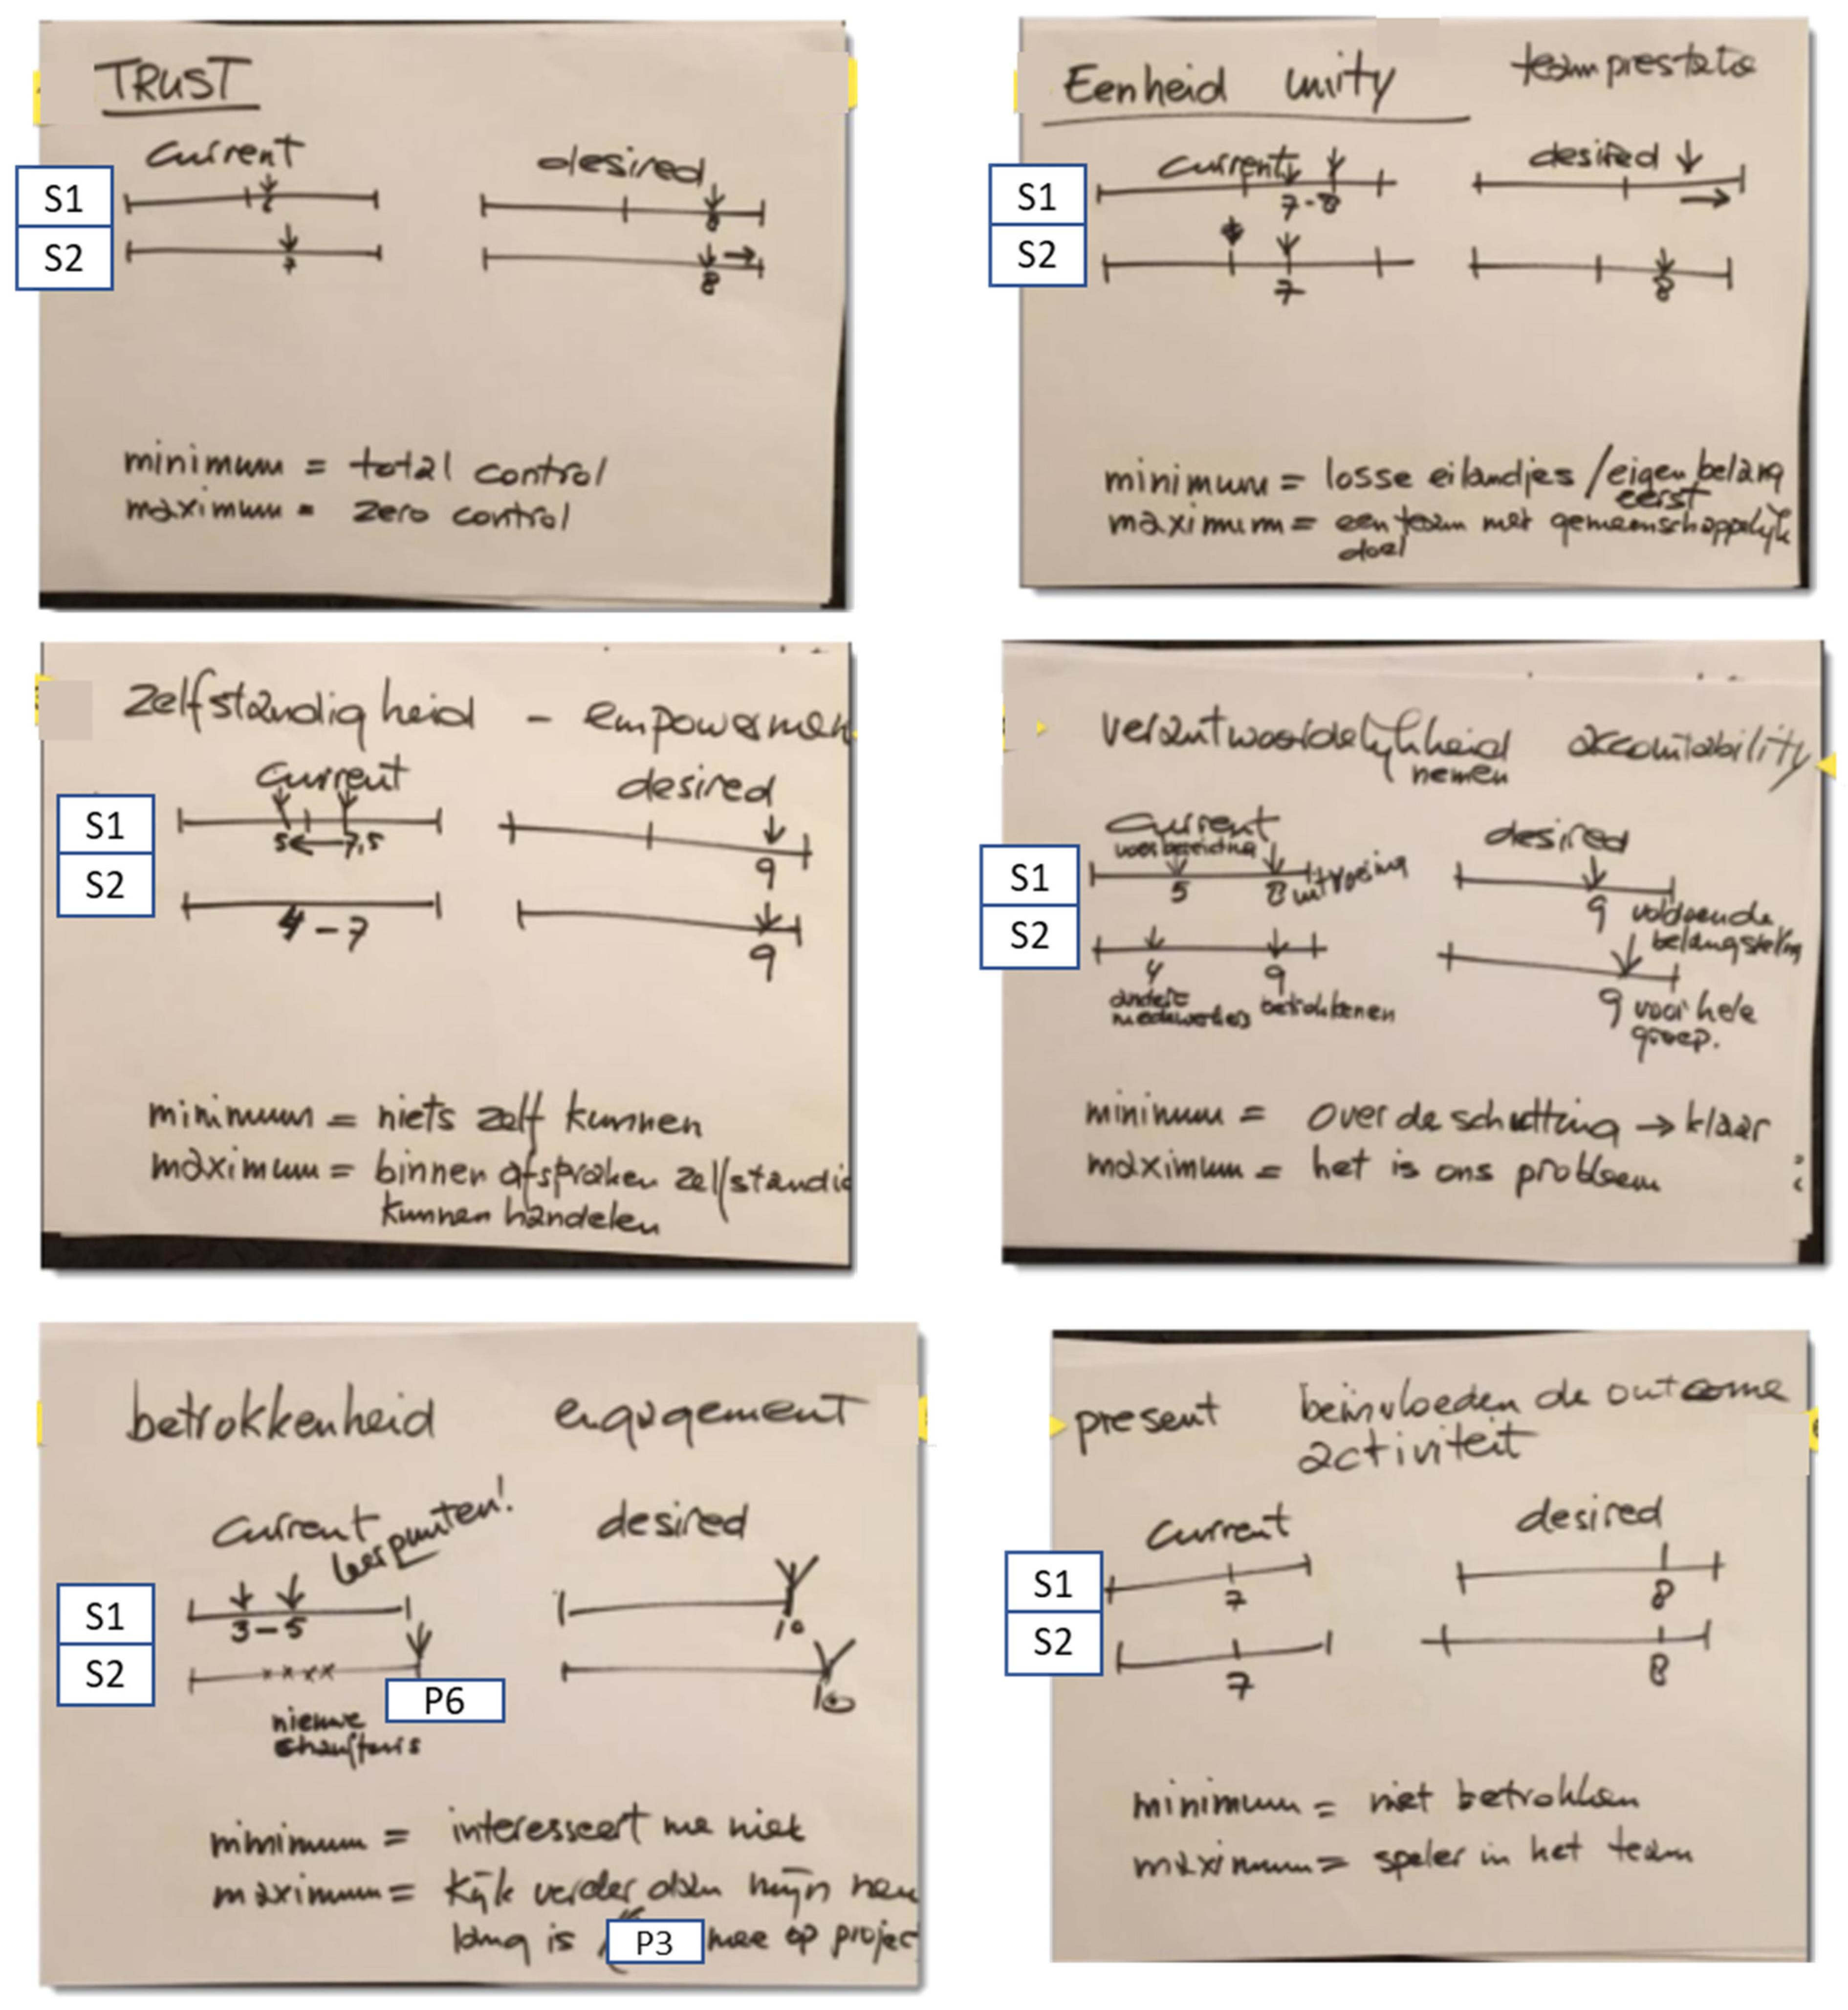 TRUST
current desired
S1
6 8
S2
7 8
minimum = total control
maximum = zero control
Eenheid unity teamprestatie
current desired
S1
7-8
S2
7 8
minimum = losse eilandjes / eigen belang
eerst
maximum = een team met gemeenschappelijk
doel
Zelfstandigheid - empowermen
current desired
S1
5 7,5 9
S2
4-7 9
minimum = niets zelf kunnen
maximum = binnen afspraken zelfstandig
kunnen handelen
verantwoordelijkheid accountability
nemen
current desired
voorbereiding
S1
5 8 uitvoering 9 voldoende
belangstelling
S2
4 9 9 voor hele
andere betrokkenen groep.
medewerkers
minimum = over de schutting → klaar
maximum = het is ons probleem
betrokkenheid engagement
current leerpunten! desired
S1
3-5 10
S2
P6 10
nieuwe
chauffeurs
minimum = interesseert me niet
maximum = kijk verder dan mijn neus
lang is P3 mee op projec
present beinvloeden de outcome
activiteit
current desired
S1
7 8
S2
7 8
minimum = niet betrokken
maximum = speler in het team